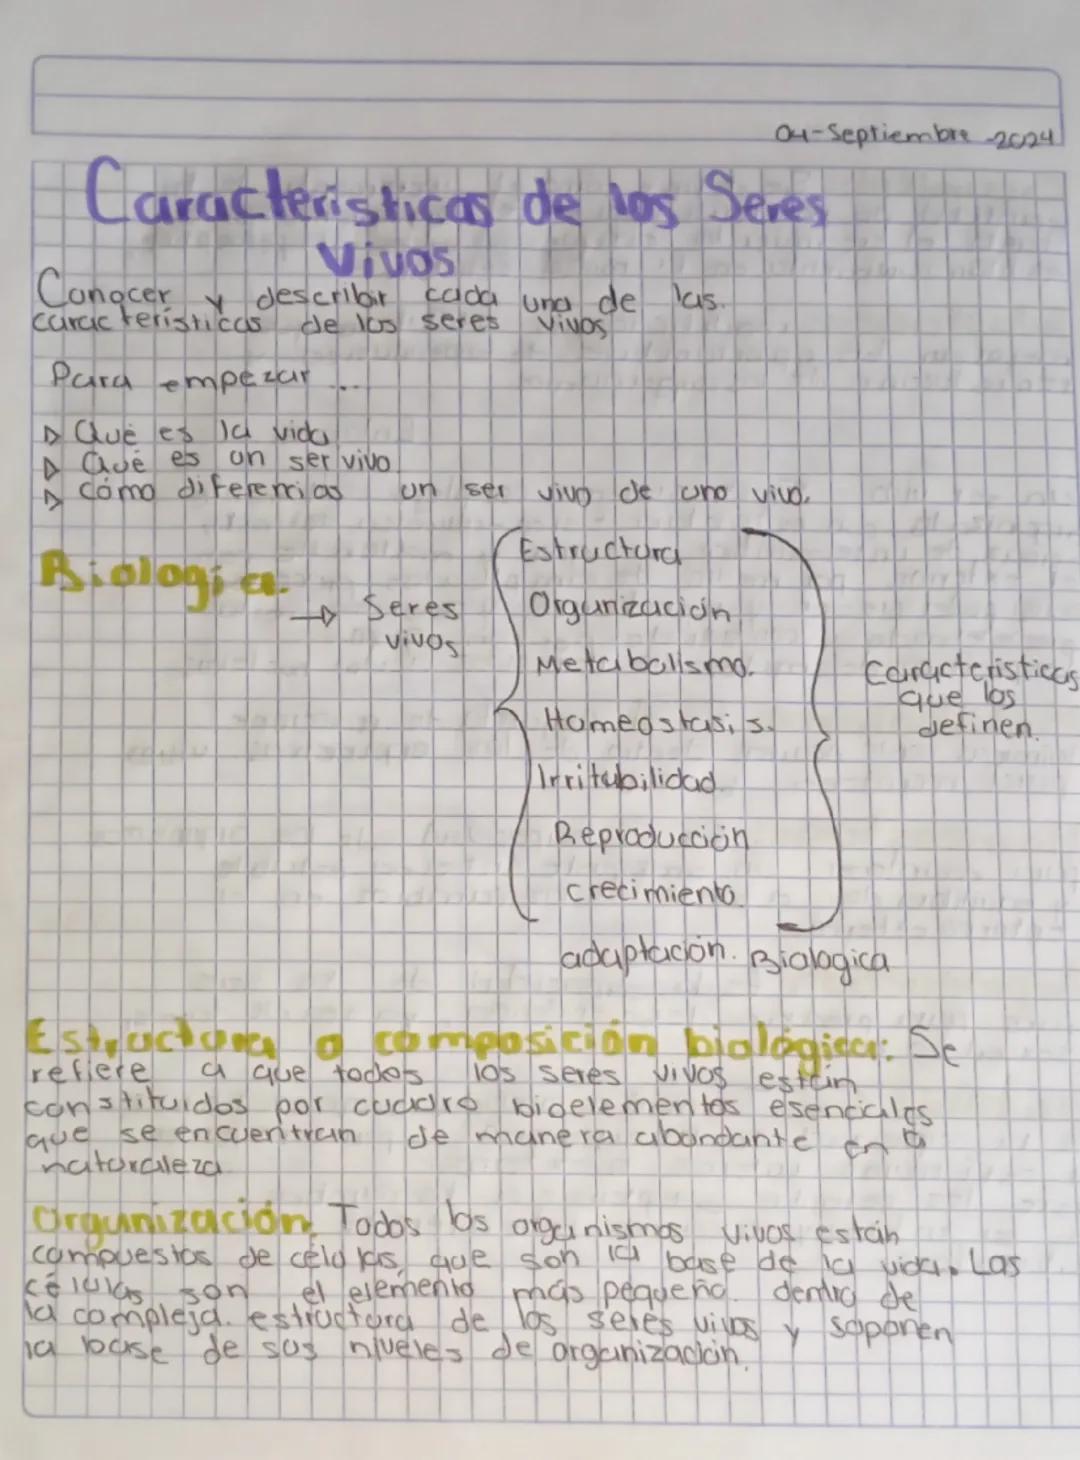 04-Septiembre-2024
Caracteristicas de los Seres
Vivos
Conocer y describir cada una de las.
caracteristicas de los seres vivos
Para empezar ...
▷ Qué es la vida
▷ Qué es un ser vivo
▷ cómo diferencias un ser vivo de uno vivo.
Biologia.
→ Seres
vivos
Estructura
Organización
Metabolismo.
Homeostasis.
Irritabilidad
Reproducción
crecimiento
adaptación. Biologica
Caracteristicas
que los
definen.
Estructura o composición biológica: Se
refiere a que todos los seres vivos están
constituidos por cuadro bioelementos esenciales
que se encuentran de manera abundante en la
naturaleza
Organización. Todos los organismos vivos están
compuestos de células, que son la base de la vida. Las
células son el elemento más pequeño. dentro de
la compleja. estructura de los seres vivos y soponen
la base de sus niveles de organización.